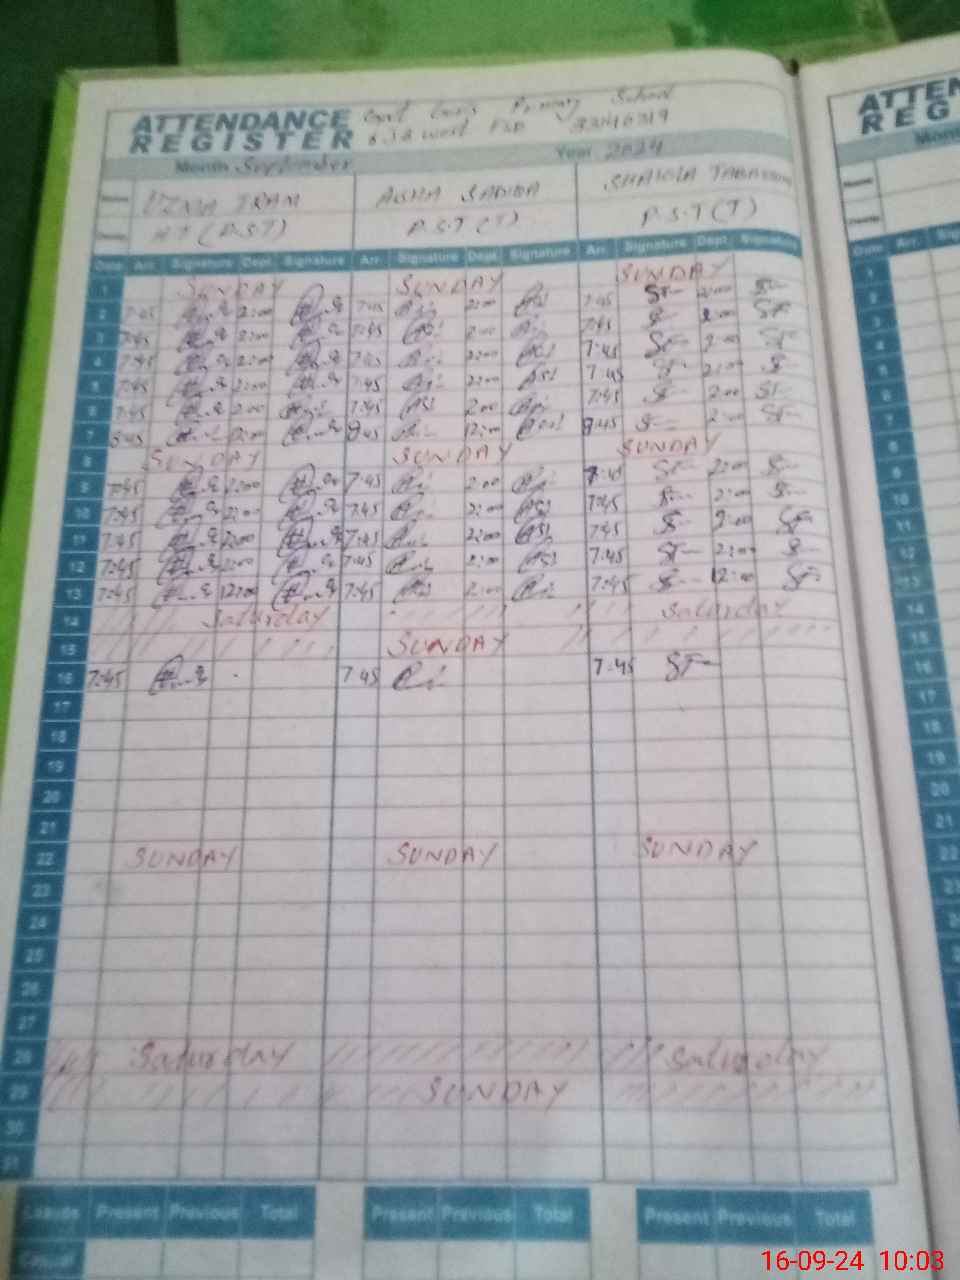 ATTENDANCE REGISTER
Govt Girls Primary School
6 J.B West FSD 33140319
Month September Year 2024
Name UZMA IRAM
AISHA SADIQA
SHAKILA TABASSUM
H.T (P.S.T)
P.S.T (T)
P.S.T (T)
Date Arr. Signature Dept. Signature Arr. Signature Dept. Signature Arr. Signature Dept. Signature
1 SUNDAY SUNDAY SUNDAY
2 7:45 2:00 7:45 2:00 7:45 2:00
3 7:45 2:00 7:45 2:00 7:45 2:00
4 7:45 2:00 7:45 2:00 7:45 2:00
5 7:45 2:00 7:45 2:00 7:45 2:00
6 7:45 2:00 7:45 2:00 7:45 2:00
7 :45 :45 :45
8 SUNDAY SUNDAY SUNDAY
9 7:45 2:00 7:45 2:00 7:45 2:00
10 7:45 2:00 7:45 2:00 7:45 2:00
11 7:45 2:00 7:45 2:00 7:45 2:00
12 7:45 2:00 7:45 2:00 7:45 2:00
13 7:45 12:00 7:45 2:00 7:45 12:00
14 Saturday Saturday
15 SUNDAY
16 7:45 7:45 7:45
17
18
19
20
21
22 SUNDAY SUNDAY SUNDAY
23
24
25
26
27
28 Saturday Saturday
29 SUNDAY
30
31
Leaves Present Previous Total Present Previous Total Present Previous Total
Casual
ATTEN
REG
Month
Date Arr.
1
2
3
4
5
6
7
8
9
10
11
12
13
14
15
16
17
18
19
20
21
22
23
16-09-24 10:03